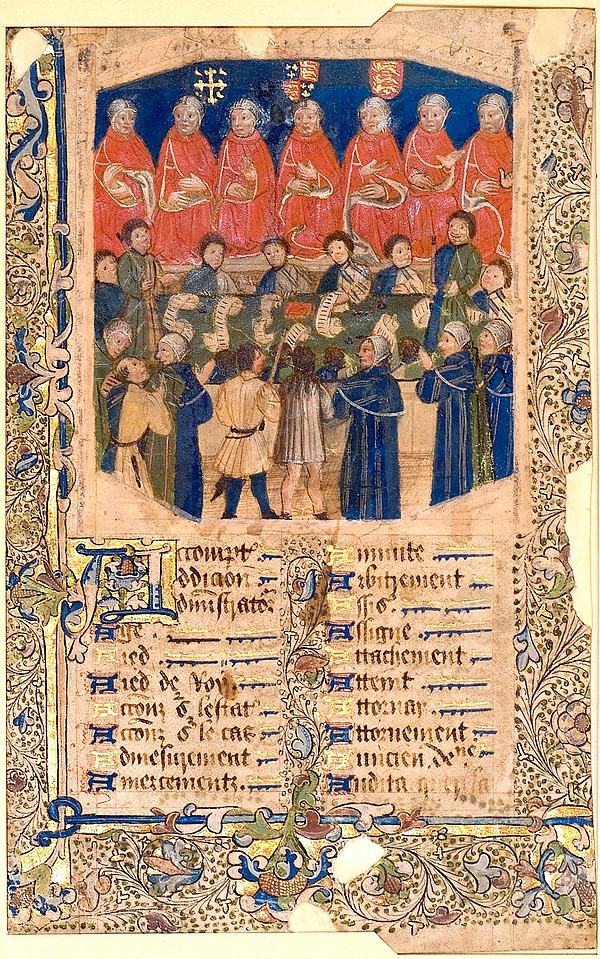 Accompt
Addicion
Administrator
Age
Aied
Aied de Roy
Accons s̄ lestat
Accons s̄ le cas
Admesurement
Amercementz
Annuite
Arbitrement
Assis
Assigne
Attachement
Atteint
Attornay
Attornement
Auncien dem̄e
Audita querela